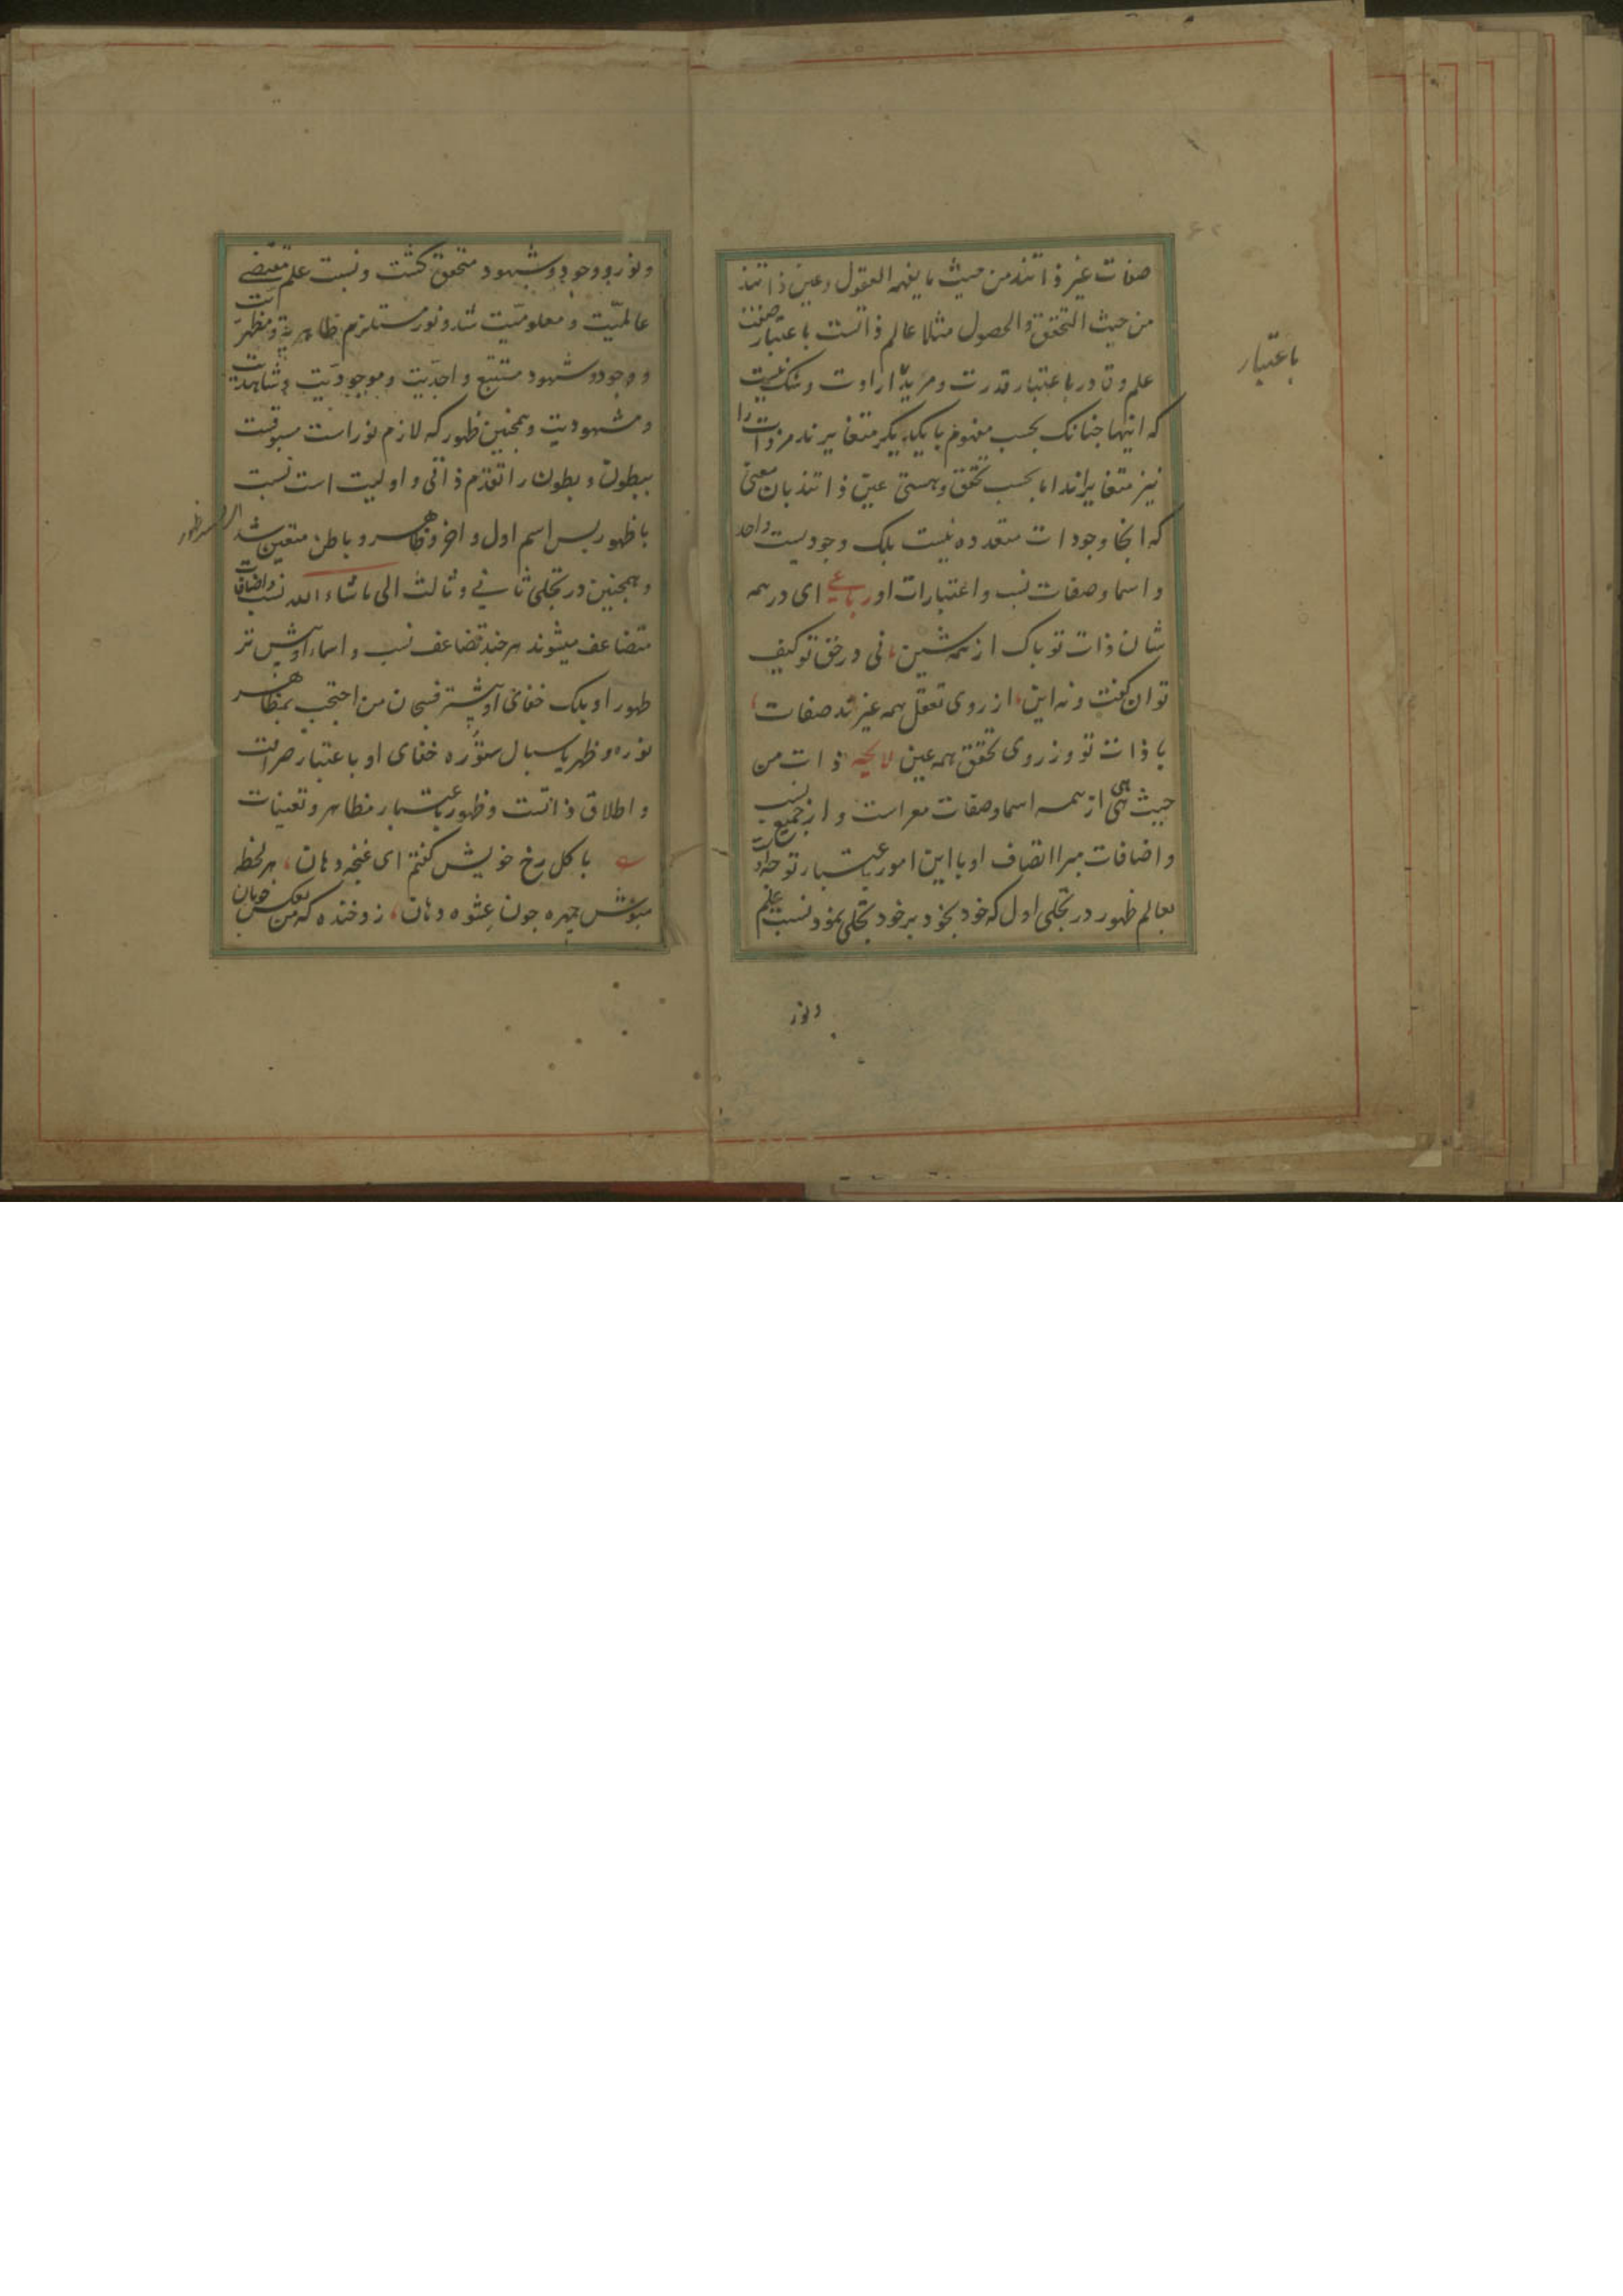 صفات غیر ذاتند من حیث ما یفهمه العقول و عین ذاتند
من حیث التحقق والحصول مثلا عالم ذاتست باعتبار صفت
علم وقادر باعتبار قدرت ومرید ارادت وشک نیست
باعتبار
که اینها چنانک بحسب مفهوم با یکدیگر متغایرند مر ذات را
نیز متغایراند اما بحسب تحقق وهستی عین ذاتند بان معنی
که انجا وجودات متعدده نیست بلک وجودیست واحد
و اسما وصفات نسب واعتبارات او رباعی ای در همه
شان ذات تو پاک از همه شین نی در حق تو کیف
توان گفت ونه این از روی تعقل همه غیرند صفات
با ذات تو وز روی تحقق همه عین لایحه ذات من
حیث هی از همه اسما وصفات معراست و از جمیع نسب
و اضافات مبرا اتصاف او با این امور باعتبار توجه اوست
بعالم ظهور در تجلی اول که خود بخود بر خود تجلی نمود نسبت علم
ونور
ونور و وجود و شهود متحقق کشت ونسبت علم مقتضی
عالمیّت ومعلومیّت شد ونور مستلزم ظاهریة ومظهریت
ووجود وشهود مستتبع واجدیت وموجودیت وشاهدیت
ومشهودیت وهمچنین ظهور که لازم نور است مسبوقست
ببطون وبطون را تقدم ذاتی و اولیت است نسبت
با ظهور پس اسم اول و اخر وظاهر وباطن متعین شد
وهمچنین در تجلی ثانی وثالث الی ماشاء الله نسب واضافات
متضاعف میشوند هرچند تضاعف نسب و اسماء او بیش تر
ظهور او بلک خفای او بیشتر فسبحان من احتجب بمظاهر
نوره وظهر باسبال ستوره خفای او باعتبار صرافت
و اطلاق ذاتست وظهور باعتبار مظاهر وتعینات
با کل رخ خویش کفتم ای غنچه دهان هر لحظه
مپوش چهره چون عشوه دهان زد خنده که من بعکس خوبان